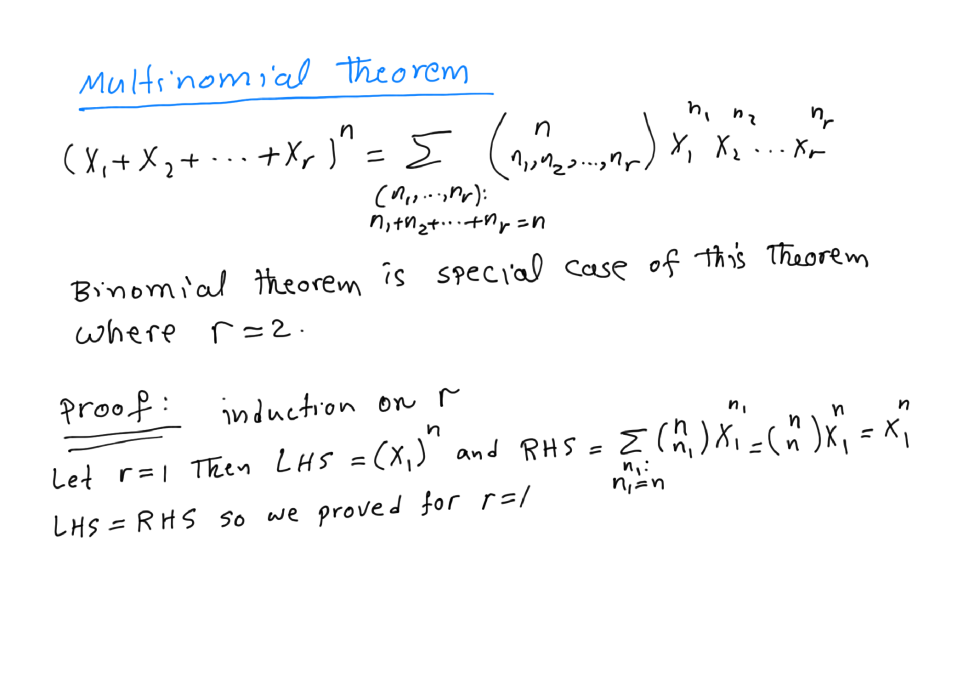 Multinomial theorem
(X₁+X₂+···+Xᵣ)ⁿ = Σ (n n₁,n₂,...,nᵣ) X₁ⁿ¹ X₂ⁿ² ... Xᵣⁿʳ
(n₁,...,nᵣ):
n₁+n₂+···+nᵣ=n
Binomial theorem is special case of this Theorem
where r=2.
Proof: induction on r
Let r=1 Then LHS = (X₁)ⁿ and RHS = Σ (n n₁) X₁ⁿ¹ = (n n) X₁ⁿ = X₁ⁿ
n₁:
n₁=n
LHS = RHS so we proved for r=1